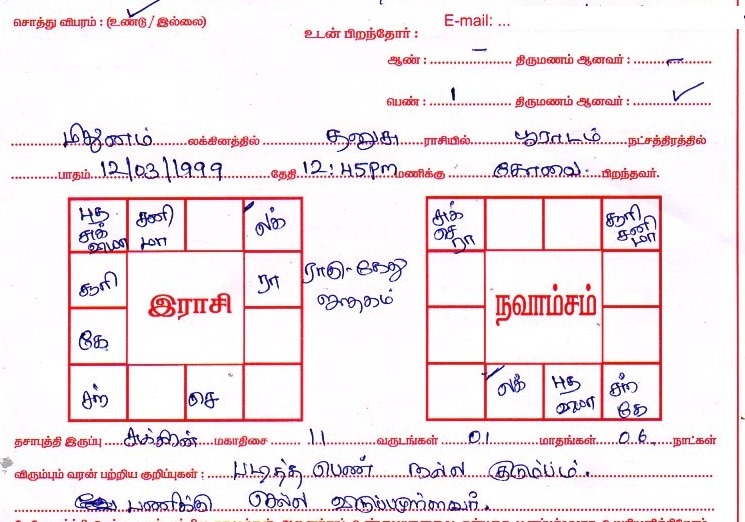 சொத்து விபரம் : (உண்டு / இல்லை)
E-mail: ...
உடன் பிறந்தோர் :
ஆண் : – திருமணம் ஆனவர் : –
பெண் : 1 திருமணம் ஆனவர் : ✓
மிதுனம் லக்கினத்தில் தனுசு ராசியில் பூராடம் நட்சத்திரத்தில்
பாதம் 12/03/1999 தேதி 12:45 Pm மணிக்கு கோவை பிறந்தவர்.
புத சனி லக் சுக் சூரி
சுக் மா செ சனி
வியா ரா மா
சூரி ரா ராகு-கேது
இராசி ஜாதகம் நவாம்சம்
கே
சந் செ லக் புத சந்
வியா கே
தசாபுத்தி இருப்பு சுக்கிரன் மகாதிசை 11 வருடங்கள் 01 மாதங்கள் 06 நாட்கள்
விரும்பும் வரன் பற்றிய குறிப்புகள் : படித்த பெண் நல்ல குடும்பம்.
பணிக்கு செல்ல விருப்பமுள்ளவர்.